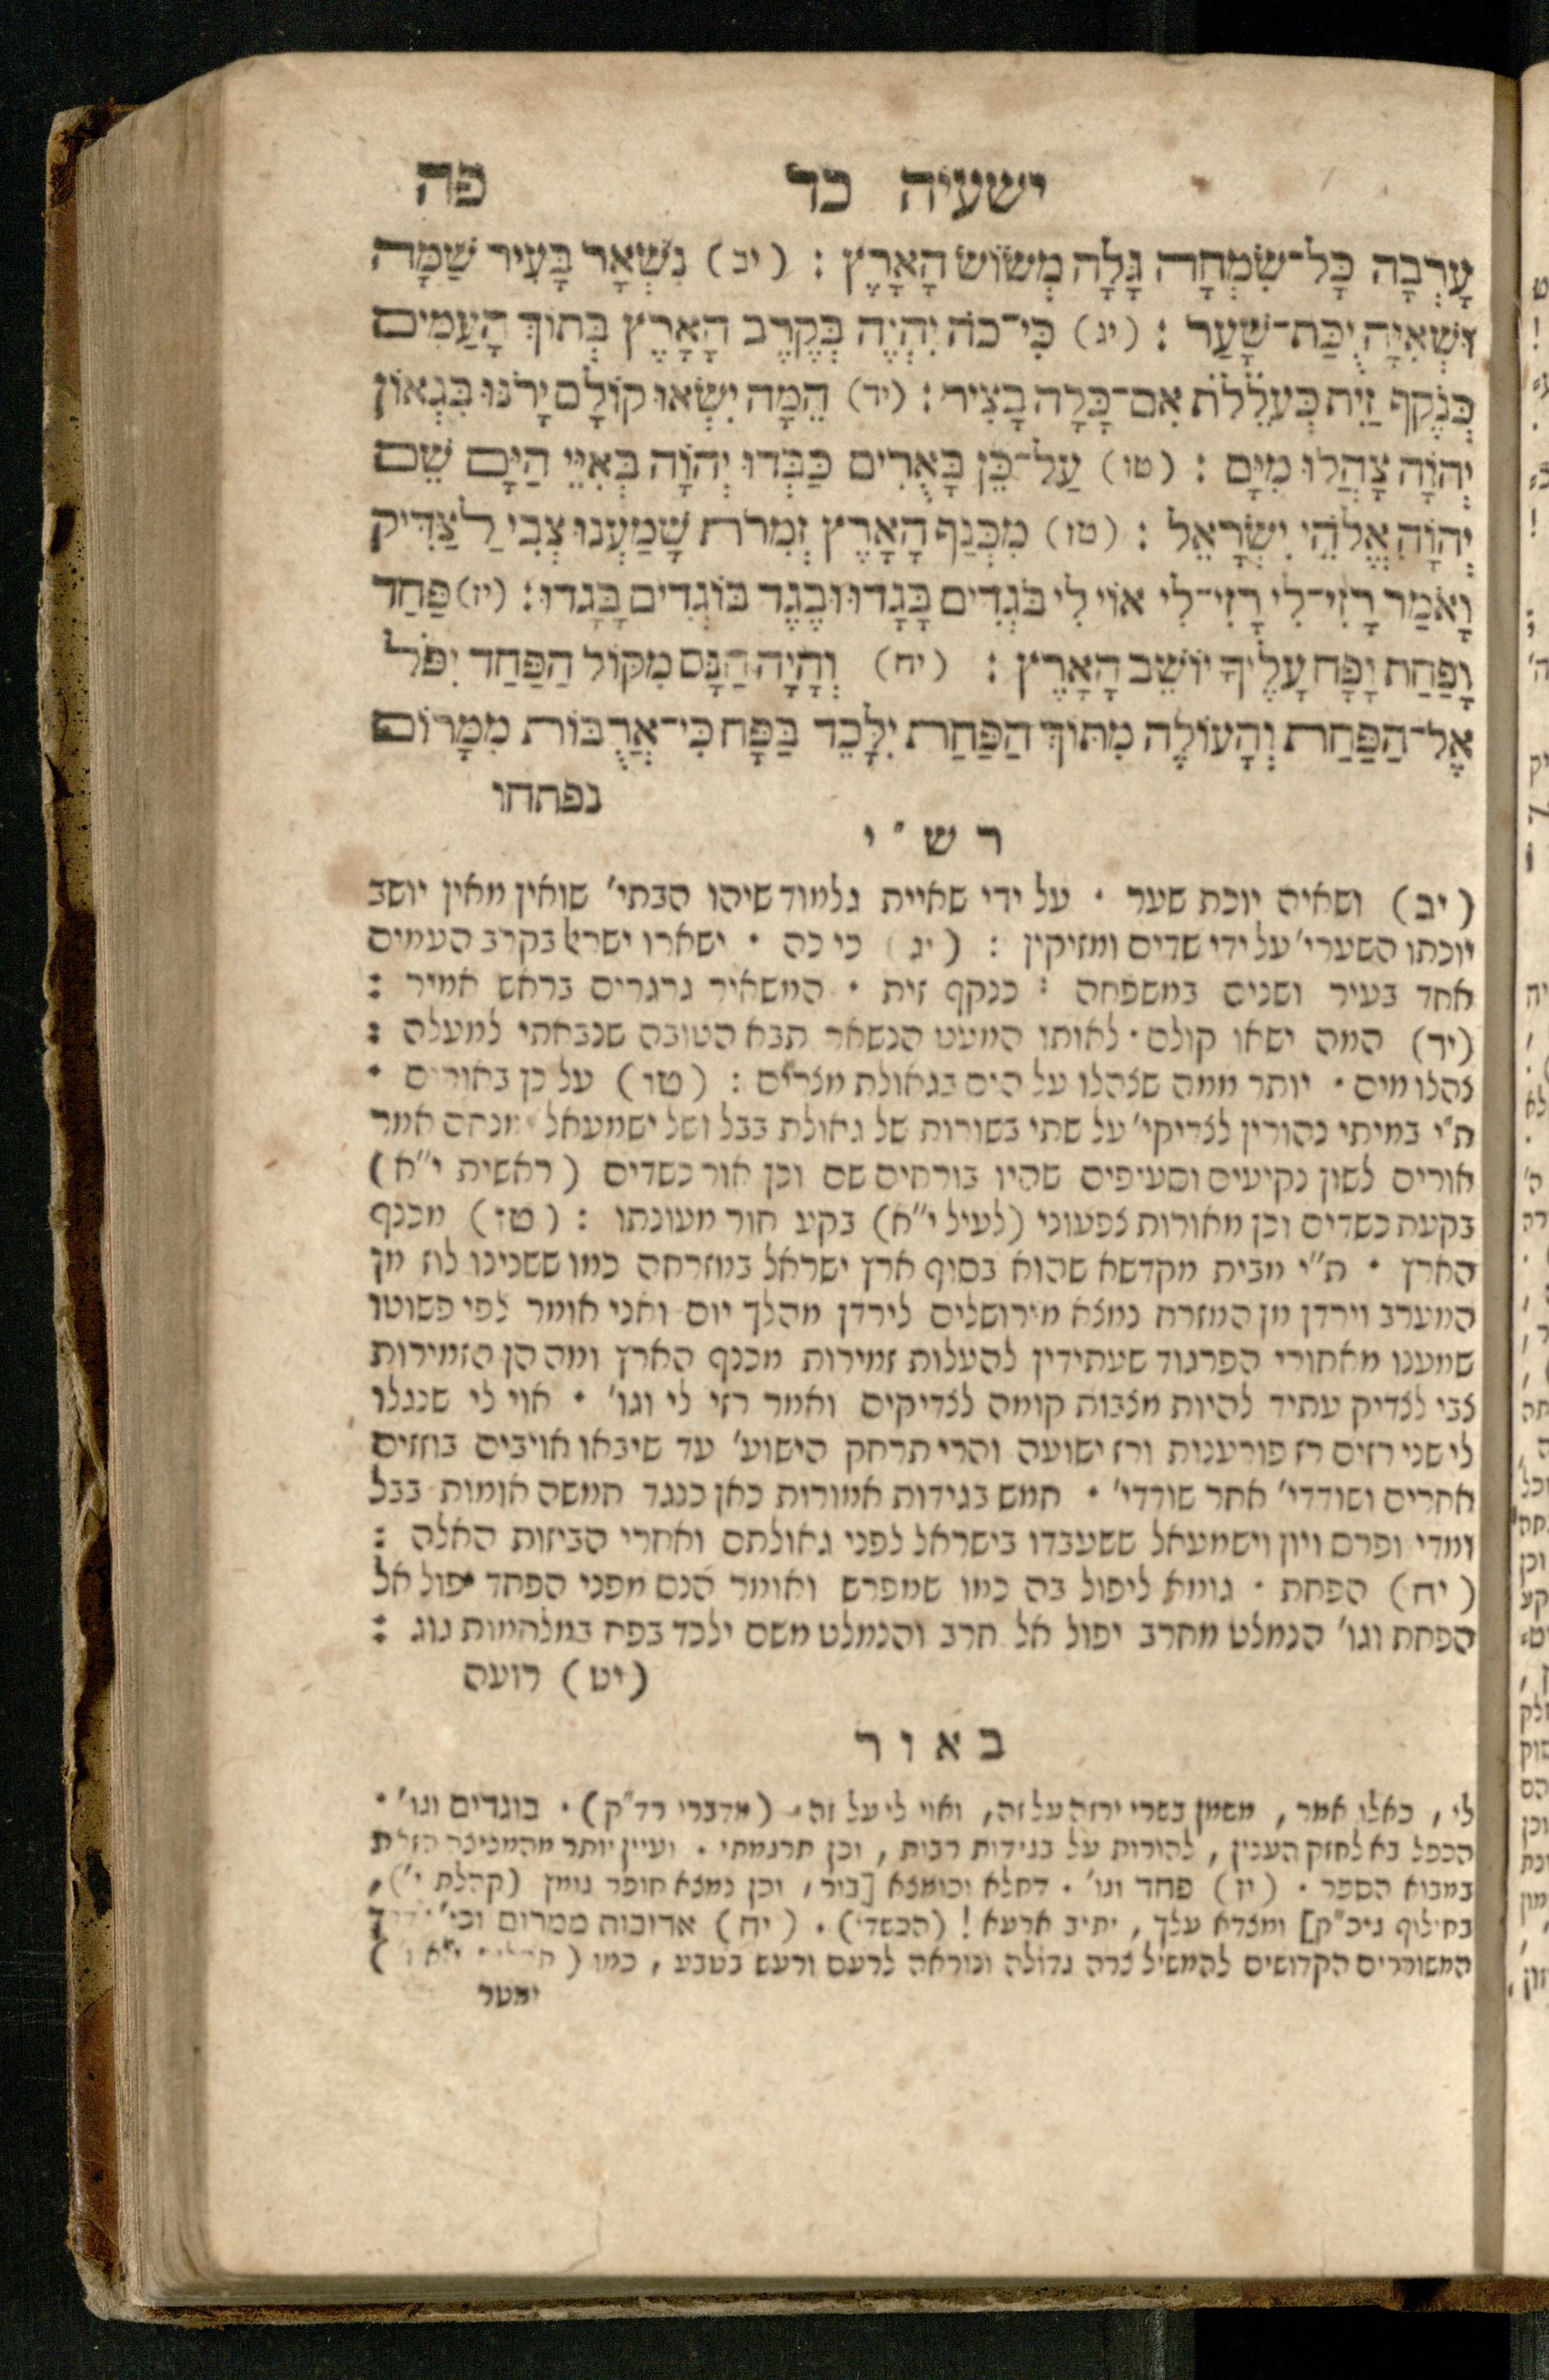 ישעיה כד פה
עָרְבָה כָּל־שִׂמְחָה גָּלָה מְשׂוֹשׂ הָאָרֶץ : (יב) נִשְׁאָר בָּעִיר שַׁמָּה
וּשְׁאִיָּה יֻכַּת־שָׁעַר : (יג) כִּי־כֹה יִהְיֶה בְּקֶרֶב הָאָרֶץ בְּתוֹךְ הָעַמִּים
כְּנֹקֶף זַיִת כְּעֹלֵלֹת אִם־כָּלָה בָצִיר : (יד) הֵמָּה יִשְׂאוּ קוֹלָם יָרֹנּוּ בִּגְאוֹן
יְהוָֹה צָהֲלוּ מִיָּם : (טו) עַל־כֵּן בָּאֻרִים כַּבְּדוּ יְהוָֹה בְּאִיֵּי הַיָּם שֵׁם
יְהוָֹה אֱלֹהֵי יִשְׂרָאֵל : (טז) מִכְּנַף הָאָרֶץ זְמִרֹת שָׁמַעְנוּ צְבִי לַצַּדִּיק
וָאֹמַר רָזִי־לִי רָזִי־לִי אוֹי לִי בֹּגְדִים בָּגָדוּ וּבֶגֶד בּוֹגְדִים בָּגָדוּ : (יז) פַּחַד
וָפַחַת וָפָח עָלֶיךָ יוֹשֵׁב הָאָרֶץ : (יח) וְהָיָה הַנָּס מִקּוֹל הַפַּחַד יִפֹּל
אֶל־הַפַּחַת וְהָעוֹלֶה מִתּוֹךְ הַפַּחַת יִלָּכֵד בַּפָּח כִּי־אֲרֻבּוֹת מִמָּרוֹם
נפתחו
ר ש " י
(יב) ושאיה יוכת שער · על ידי שאיית גלמוד שיהו הבתי' שואין מאין יושב
יוכתו השערי' על ידי שדים ומזיקין : (יג) כי כה · ישארו ישראל בקרב העמים
אחד בעיר ושנים במשפחה : כנקף זית · המשאיר גרגרים בראש אמיר :
(יד) המה ישאו קולם · לאותו המעט הנשאר תבא הטובה שנבאתי למעלה :
צהלו מים · יותר ממה שצהלו על הים בגאולת מצרים : (טו) על כן באורים ·
ת"י במיתי נהורין לצדיקי' על שתי בשורות של גאולת בבל ושל ישמעאל מנחם אמר
אורים לשון נקיעים וסעיפים שהיו בורחים שם וכן אור כשדים (ראשית י"א)
בקעת כשדים וכן מאורות צפעוני (לעיל י"א) בקע חור מעונתו : (טז) מכנף
הארץ · ת"י מבית מקדשא שהוא בסוף ארץ ישראל במזרחה כמו ששנינו לוז מן
המערב וירדן מן המזרח נמצא מירושלים לירדן מהלך יום ואני אומר לפי פשוטו
שמענו מאחורי הפרגוד שעתידין להעלות זמירות מכנף הארץ ומה הן הזמירות
צבי לצדיק עתיד להיות מצבות קומה לצדיקים ואמר רזי לי וגו' · אוי לי שנגלו
לי שני רזים רז פורענות ורז ישועה והרי תרחק הישוע' עד שיבאו אויבים בוזזים
אחרים ושודדי' אחר שודדי' · חמש בגידות אמורות כאן כנגד חמשה אומות בבל
ומדי ופרס ויון וישמעאל ששעבדו בישראל לפני גאולתם ואחרי הביזות האלה :
(יח) הפחת · גומא ליפול בה כמו שמפרש ואומר הנס מפני הפחד יפול אל
הפחת וגו' הנמלט מחרב יפול אל חרב והנמלט משם ילכד בפח במלחמות גוג :
(יט) רועה
ב א ו ר
לי , כאלו אמר , משמן בשרי ירזה על זה , ואוי לי על זה · (מדברי רד"ק) · בוגדים וגו' ·
הכפל בא לחזק הענין , להורות על בגידות רבות , וכן תרגמתי · ועיין יותר מהמליצה הזאת
במבוא הספר · (יז) פחד וגו' · דחלא וכומצא [ביר , וכן נמצא חופר גומץ (קהלת י') ,
בחילוף גיכ"ק] ומצדא עלך , יתיב ארעא ! (הכשדי) · (יח) ארובות ממרום וכו'
המשוררים הקדושים להמשיל צרה גדולה ונוראה לרעם ורעש בטבע , כמו (
ימטר